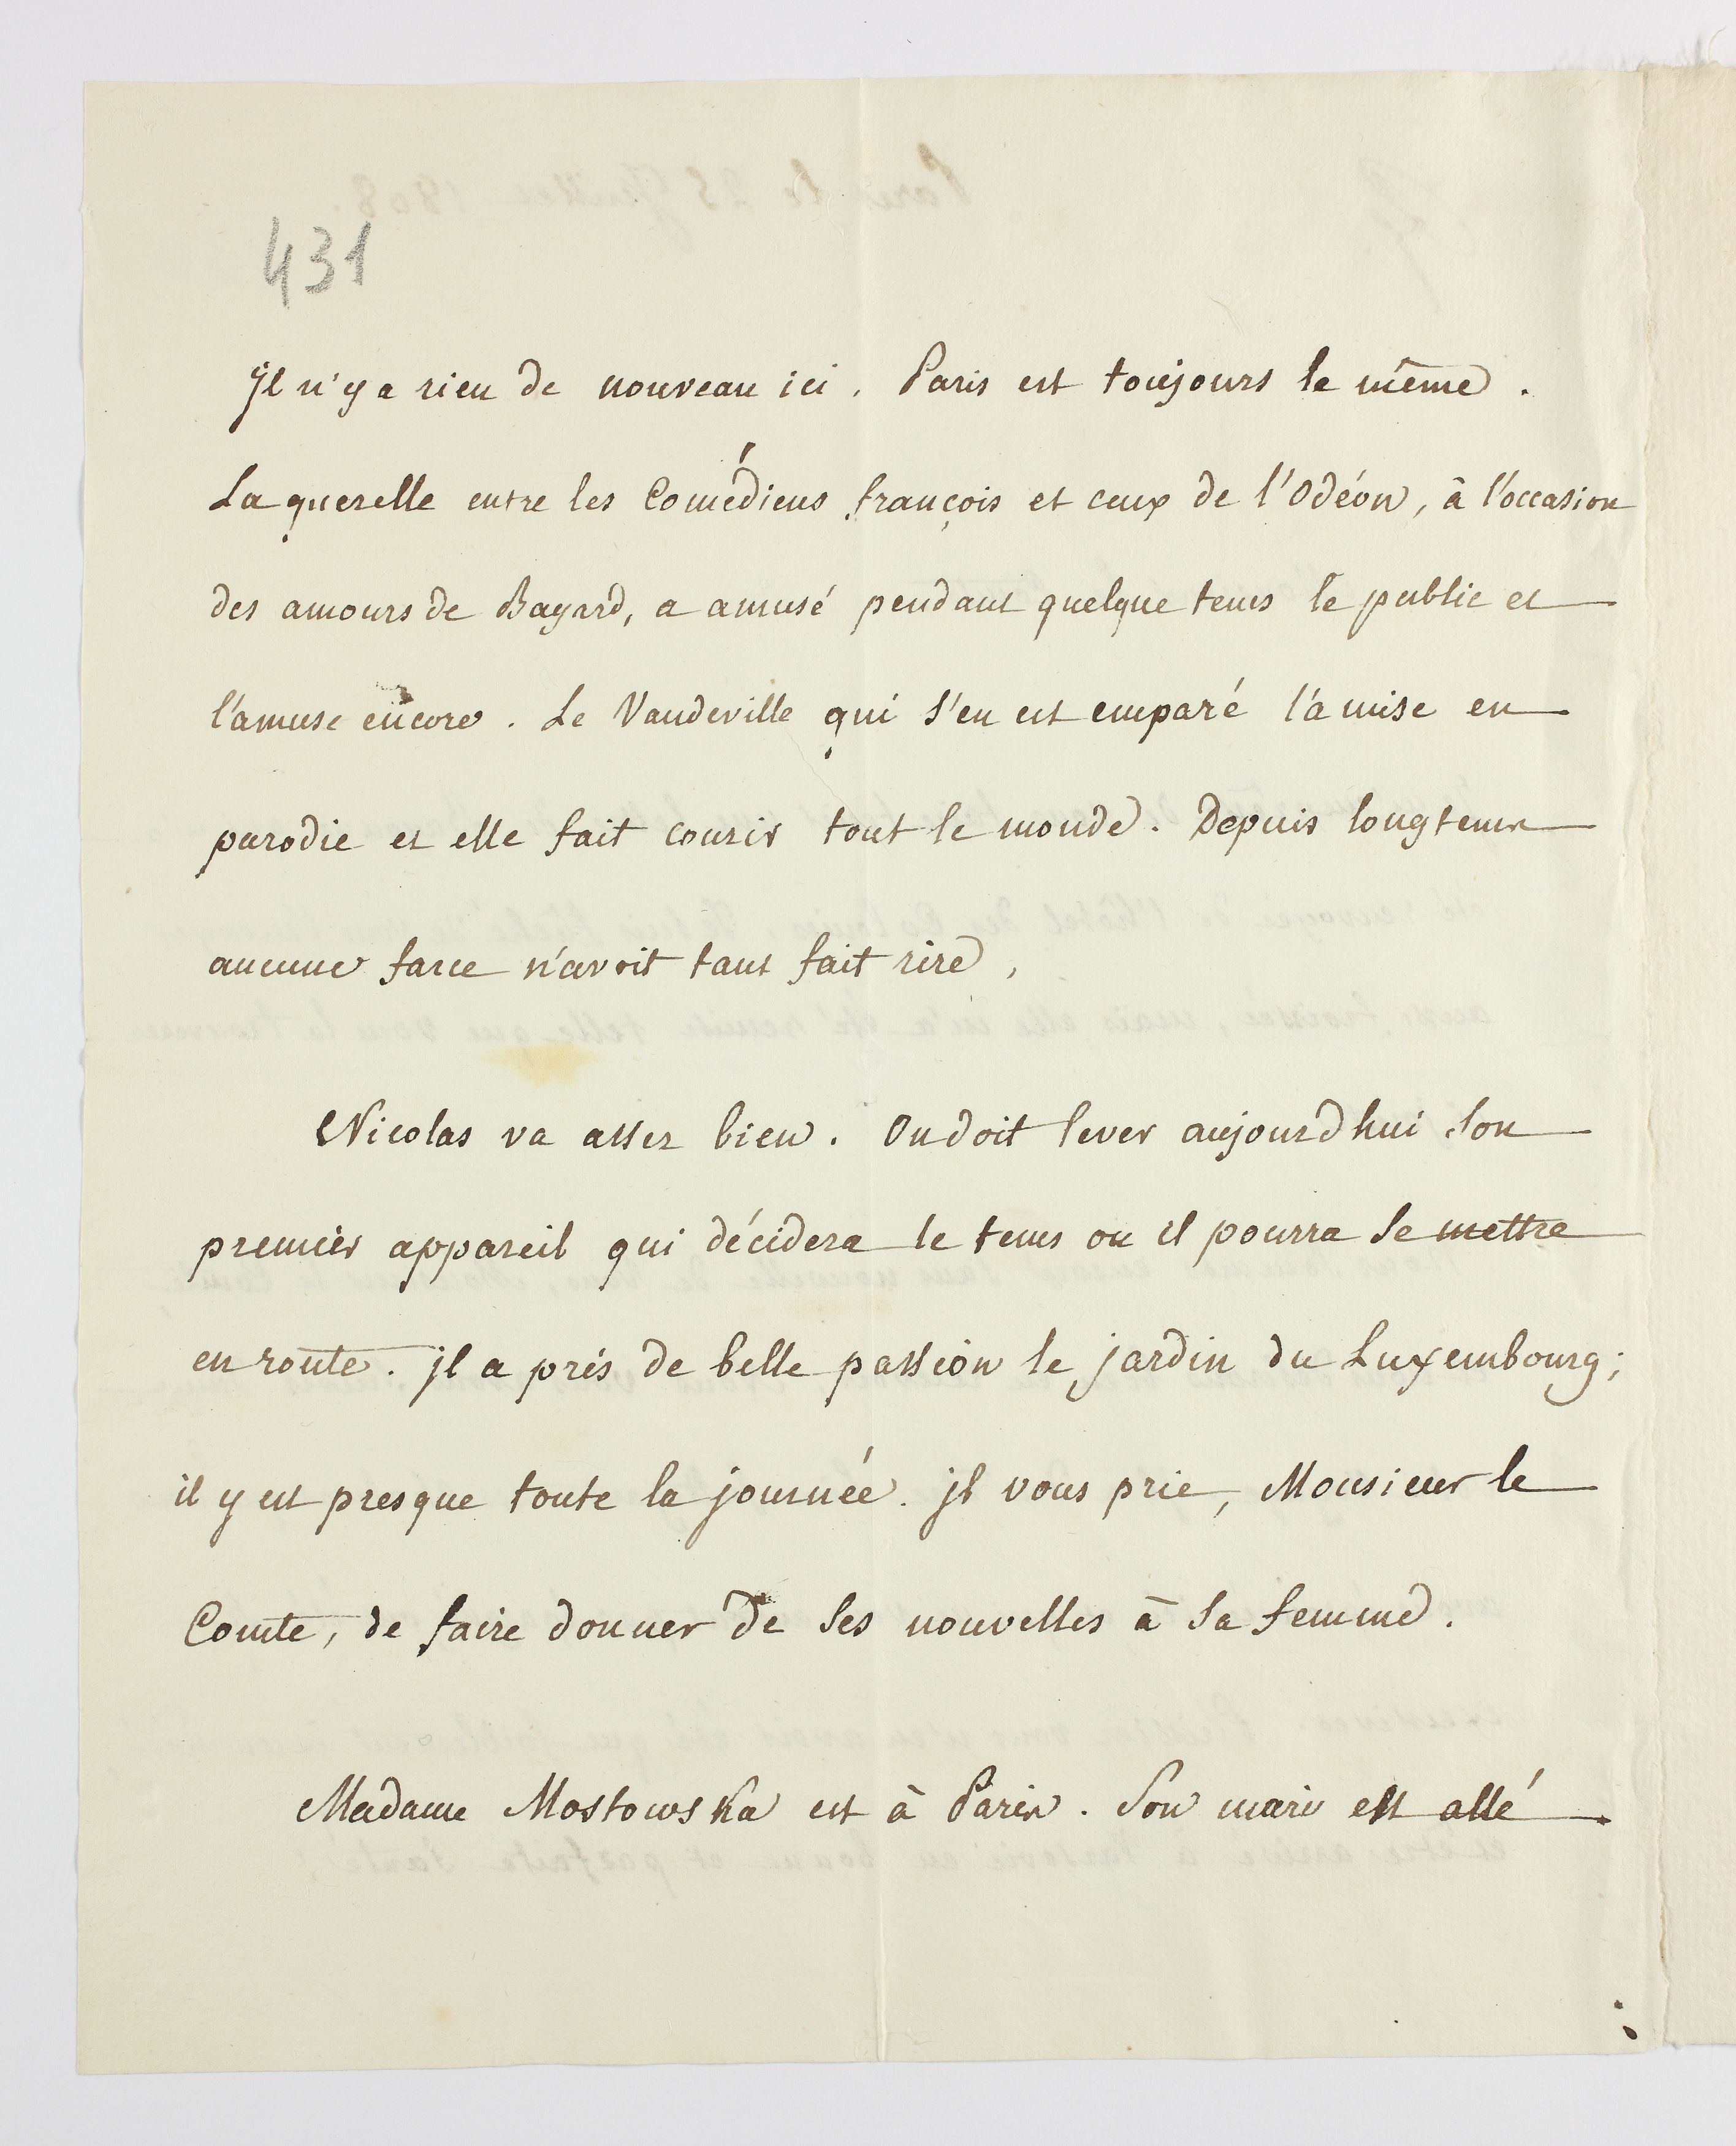 431
Jl n'y a rien de nouveau ici. Paris est toujours le même.
La querelle entre les Comédiens françois et ceux de l'Odéon, à l'occasion
des amours de Bayard, a amusé pendant quelque tems le public et
l'amuse encore. Le Vaudeville qui s'en est emparé l'a mise en
parodie et elle fait courir tout le monde. Depuis longtems
aucune farce n'avoit tant fait rire.
Nicolas va assez bien. On doit lever aujourd'hui son
premier appareil qui décidera le tems ou il pourra se mettre
en route. Jl a pris de belle passion le jardin du Luxembourg;
il y est presque toute la journée. Jl vous prie, Monsieur le
Comte, de faire donner de ses nouvelles à sa femme.
Madame Mostowska est à Paris. Son mari est allé